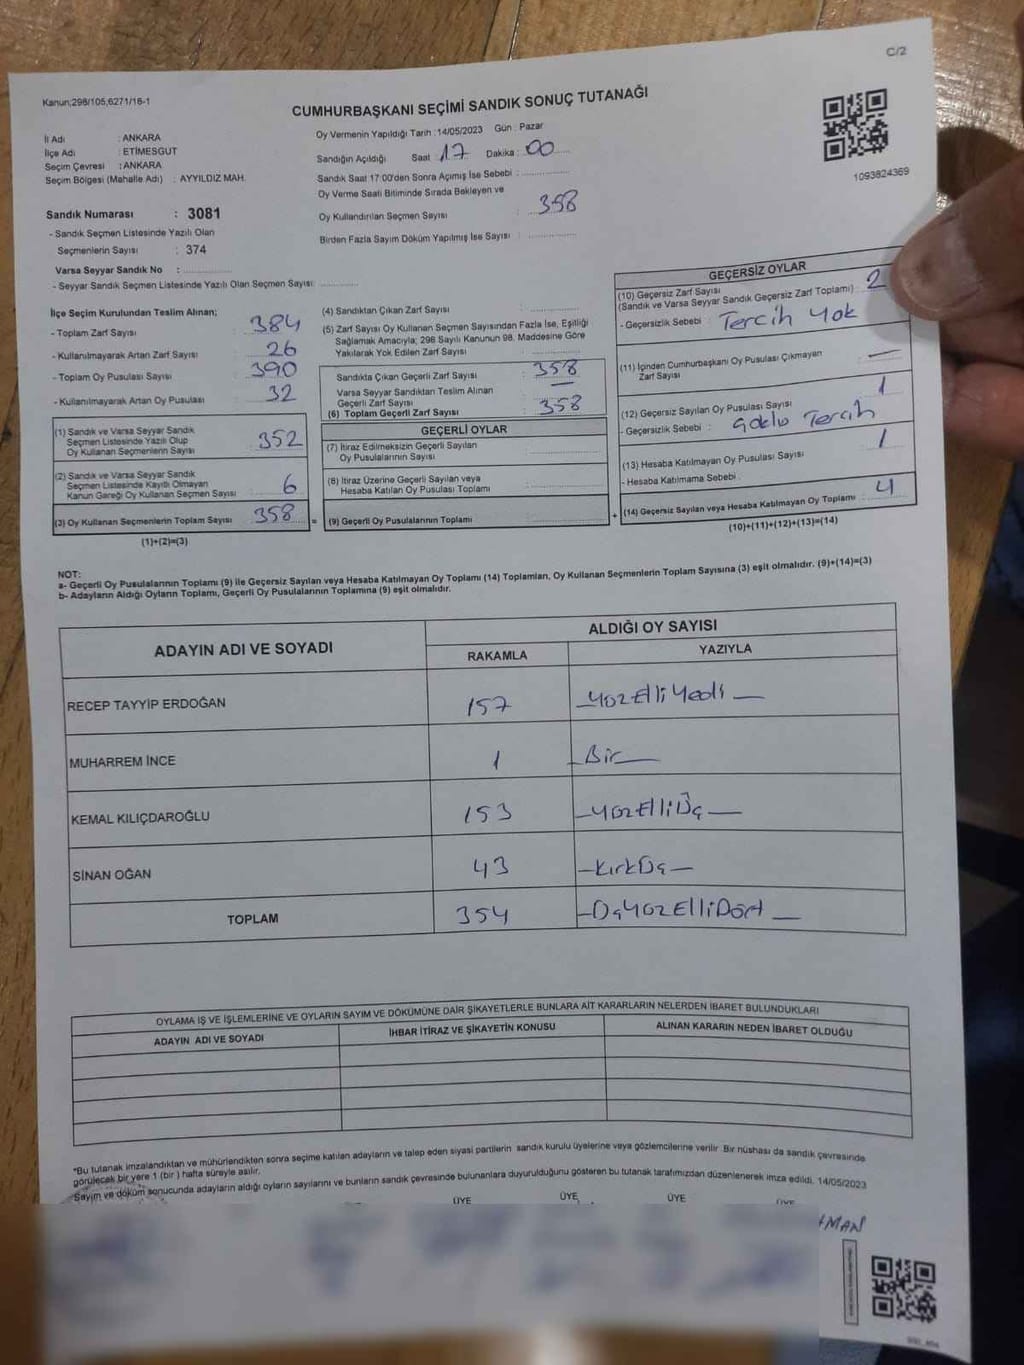 C/2
Kanun;298/105;6271/16-1
CUMHURBAŞKANI SEÇİMİ SANDIK SONUÇ TUTANAĞI
1093824369
İl Adı : ANKARA
İlçe Adı : ETİMESGUT
Seçim Çevresi : ANKARA
Seçim Bölgesi (Mahalle Adı) : AYYILDIZ MAH.
Sandık Numarası : 3081
- Sandık Seçmen Listesinde Yazılı Olan
Seçmenlerin Sayısı : 374
Varsa Seyyar Sandık No :
- Seyyar Sandık Seçmen Listesinde Yazılı Olan Seçmen Sayısı:
Oy Vermenin Yapıldığı Tarih :14/05/2023 Gün : Pazar
Sandığın Açıldığı Saat : 17 Dakika : 00
Sandık Saat 17:00'den Sonra Açımış İse Sebebi :
Oy Verme Saati Bitiminde Sırada Bekleyen ve
Oy Kullandırılan Seçmen Sayısı : 358
Birden Fazla Sayım Döküm Yapılmış İse Sayısı :
İlçe Seçim Kurulundan Teslim Alınan;
- Toplam Zarf Sayısı : 384
- Kullanılmayarak Artan Zarf Sayısı : 26
- Toplam Oy Pusulası Sayısı : 390
- Kullanılmayarak Artan Oy Pusulası : 32
(1) Sandık ve Varsa Seyyar Sandık
Seçmen Listesinde Yazılı Olup
Oy Kullanan Seçmenlerin Sayısı : 352
(2) Sandık ve Varsa Seyyar Sandık
Seçmen Listesinde Kayıtlı Olmayan
Kanun Gereği Oy Kullanan Seçmen Sayısı : 6
(3) Oy Kullanan Seçmenlerin Toplam Sayısı : 358 =
(1)+(2)=(3)
(4) Sandıktan Çıkan Zarf Sayısı :
(5) Zarf Sayısı Oy Kullanan Seçmen Sayısından Fazla İse, Eşitliği
Sağlamak Amacıyla; 298 Sayılı Kanunun 98. Maddesine Göre
Yakılarak Yok Edilen Zarf Sayısı :
Sandıkta Çıkan Geçerli Zarf Sayısı : 358
Varsa Seyyar Sandıktan Teslim Alınan
Geçerli Zarf Sayısı : —
(6) Toplam Geçerli Zarf Sayısı : 358
GEÇERLİ OYLAR
(7) İtiraz Edilmeksizin Geçerli Sayılan
Oy Pusulalarının Sayısı :
(8) İtiraz Üzerine Geçerli Sayılan veya
Hesaba Katılan Oy Pusulası Toplamı :
(9) Geçerli Oy Pusulalarının Toplamı : +
GEÇERSİZ OYLAR
(10) Geçersiz Zarf Sayısı
(Sandık ve Varsa Seyyar Sandık Geçersiz Zarf Toplamı) : 2
- Geçersizlik Sebebi : Tercih Yok
(11) İçinden Cumhurbaşkanı Oy Pusulası Çıkmayan
Zarf Sayısı : —
(12) Geçersiz Sayılan Oy Pusulası Sayısı : 1
- Geçersizlik Sebebi : Çoklu Tercih
(13) Hesaba Katılmayan Oy Pusulası Sayısı : 1
- Hesaba Katılmama Sebebi :
(14) Geçersiz Sayılan veya Hesaba Katılmayan Oy Toplamı : 4
(10)+(11)+(12)+(13)=(14)
NOT:
a- Geçerli Oy Pusulalarının Toplamı (9) ile Geçersiz Sayılan veya Hesaba Katılmayan Oy Toplamı (14) Toplamları, Oy Kullanan Seçmenlerin Toplam Sayısına (3) eşit olmalıdır. (9)+(14)=(3)
b- Adayların Aldığı Oyların Toplamı, Geçerli Oy Pusulalarının Toplamına (9) eşit olmalıdır.
ADAYIN ADI VE SOYADI ALDIĞI OY SAYISI
RAKAMLA YAZIYLA
RECEP TAYYİP ERDOĞAN 157 —YüzElliYedi—
MUHARREM İNCE 1 —Bir—
KEMAL KILIÇDAROĞLU 153 —YüzElliÜç—
SİNAN OĞAN 43 —KırkÜç—
TOPLAM 354 —ÜçYüzElliDört—
OYLAMA İŞ VE İŞLEMLERİNE VE OYLARIN SAYIM VE DÖKÜMÜNE DAİR ŞİKAYETLERLE BUNLARA AİT KARARLARIN NELERDEN İBARET BULUNDUKLARI
ADAYIN ADI VE SOYADI İHBAR İTİRAZ VE ŞİKAYETİN KONUSU ALINAN KARARIN NEDEN İBARET OLDUĞU
*Bu tutanak imzalandıktan ve mühürlendikten sonra seçime katılan adayların ve talep eden siyasi partilerin sandık kurulu üyelerine veya gözlemcilerine verilir. Bir nüshası da sandık çevresinde
görülecek bir yere 1 (bir ) hafta süreyle asılır.
Sayım ve döküm sonucunda adayların aldığı oyların sayılarını ve bunların sandık çevresinde bulunanlara duyurulduğunu gösteren bu tutanak tarafımızdan düzenlenerek imza edildi. 14/05/2023
ÜYE ÜYE ÜYE ÜYE
MAN